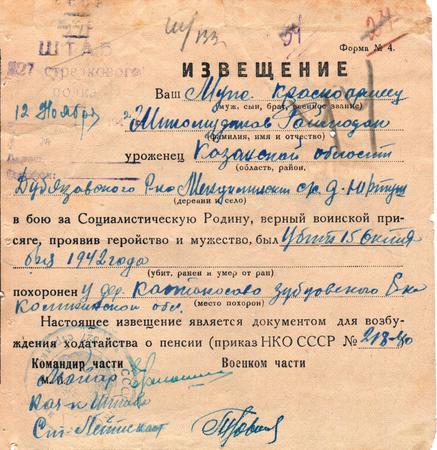 СССР
ш/133
57
24
ШТАБ
Форма № 4.
№27 стрелкового
полка
ИЗВЕЩЕНИЕ
12 Ноября
Ваш Муж красноармеец
(муж, сын, брат, военное звание)
(фамилия, имя и отчество)
уроженец Казанской области
(область, район,
Дубязовского р-на с/с д. Юртуш
деревни и село)
в бою за Социалистическую Родину, верный воинской при-
сяге, проявив геройство и мужество, был Убит 15 октя
бря 1942 года
(убит, ранен и умер от ран)
похоронен У дер. Зубцовского р-на
Калининской обл.
(место похорон)
Настоящее извещение является документом для возбу-
ждения ходатайства о пенсии (приказ НКО СССР № 218-40
Командир части
Военком части
Майор
Нач-к Штаба
Ст. Лейтенант